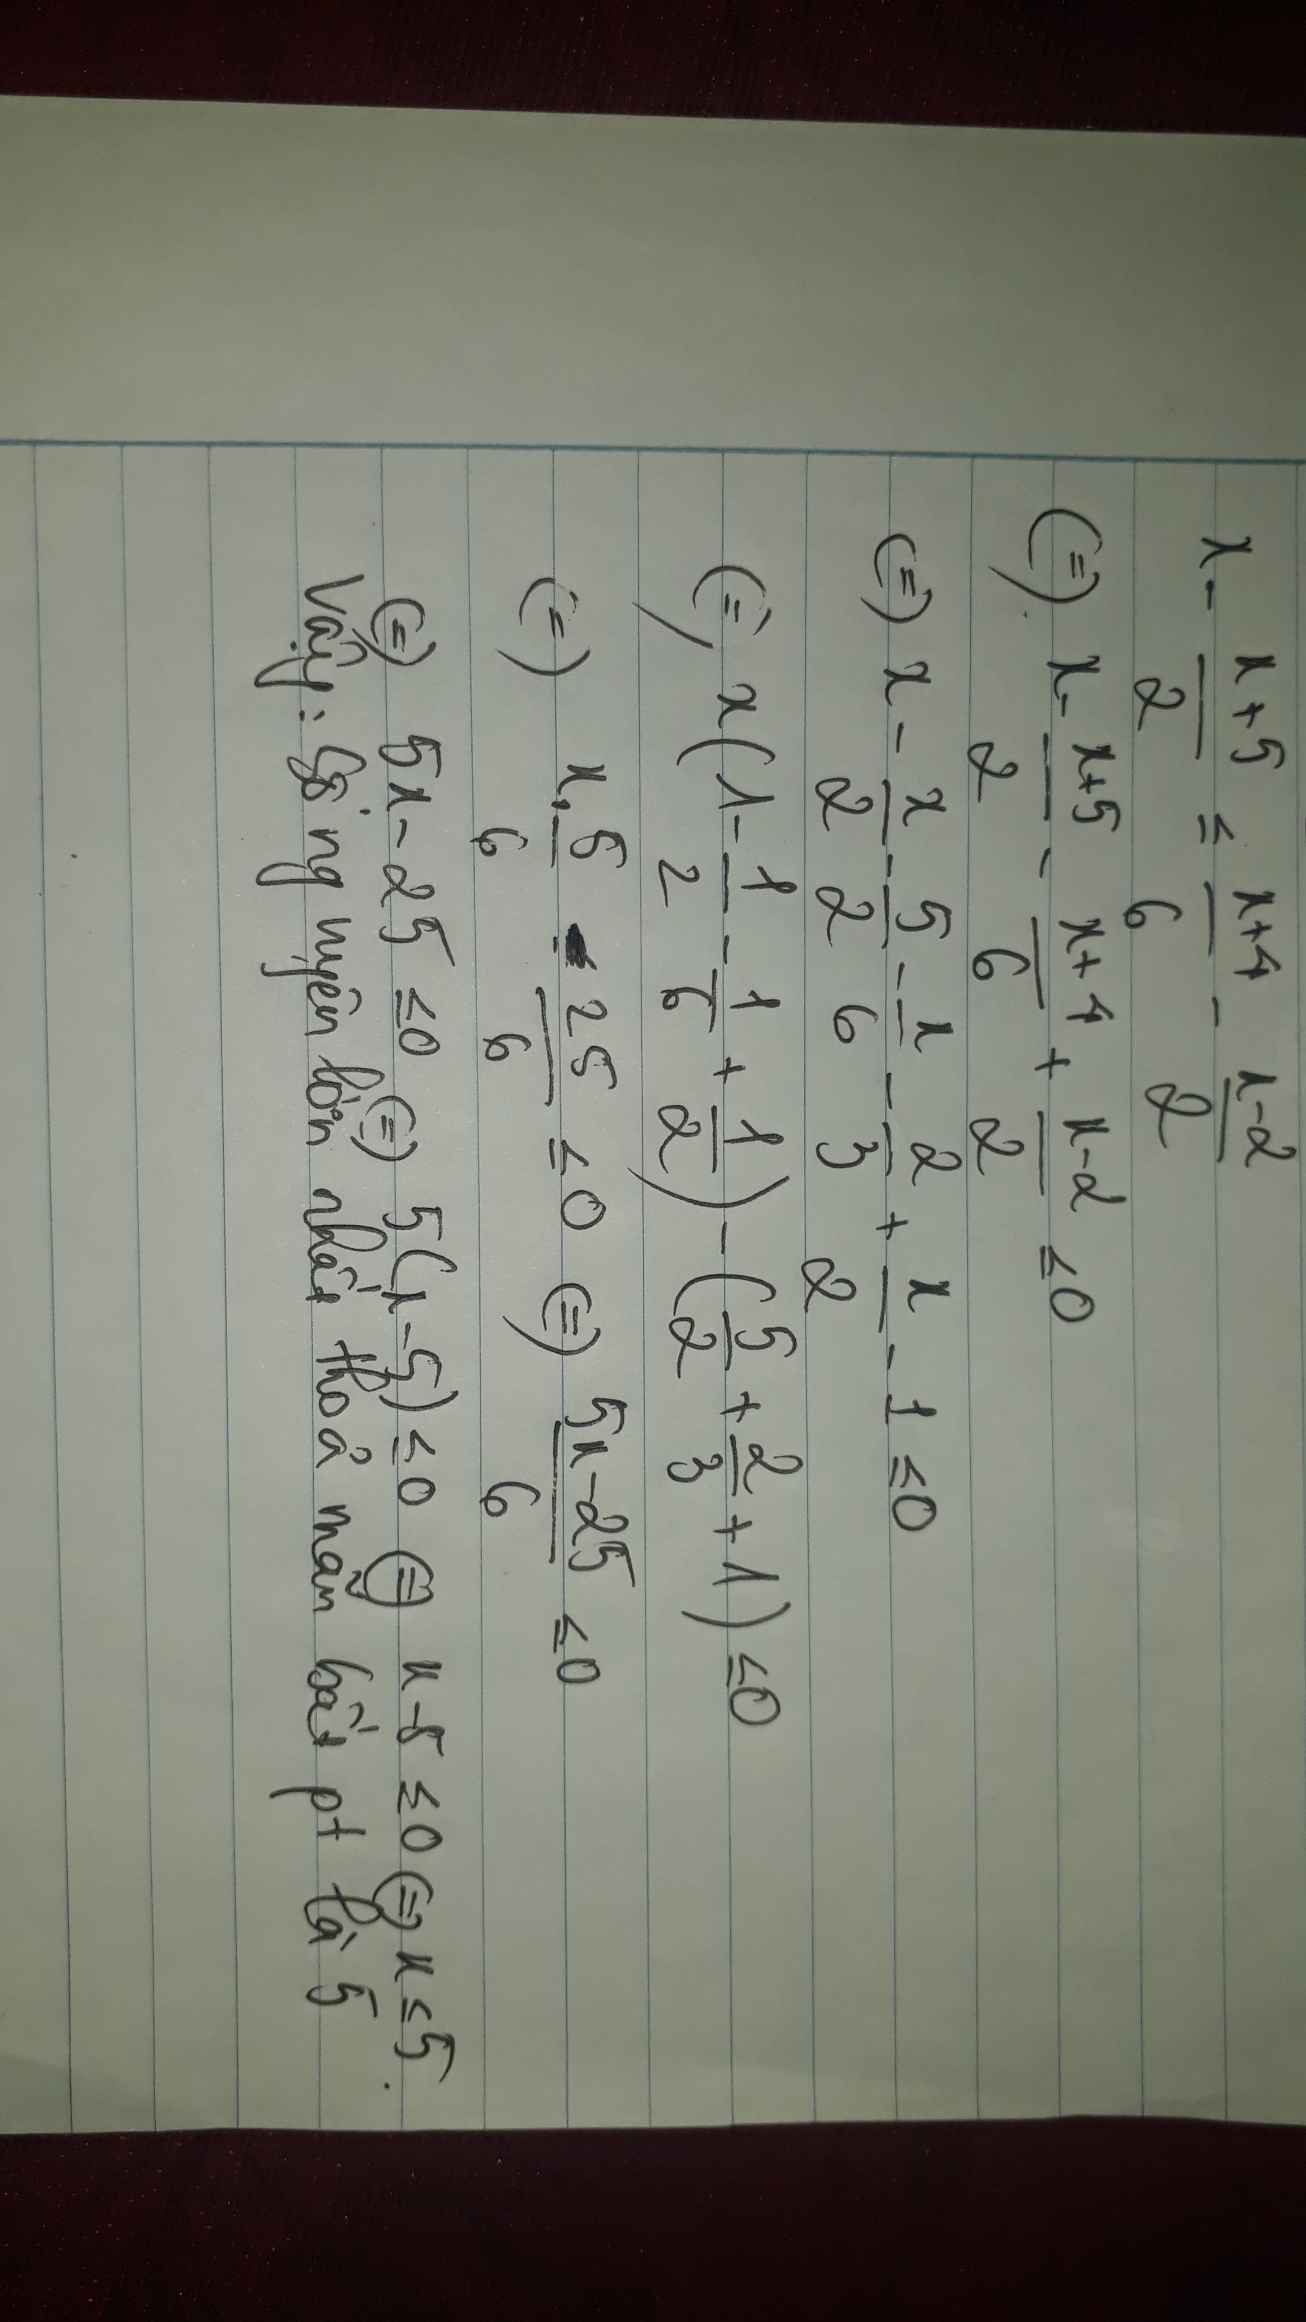 x - \frac{x+5}{2} ≤ \frac{x+4}{6} - \frac{x-2}{2}
(=) x - \frac{x+5}{2} - \frac{x+4}{6} + \frac{x-2}{2} ≤ 0
(=) x - \frac{x}{2} - \frac{5}{2} - \frac{x}{6} - \frac{2}{3} + \frac{x}{2} - 1 ≤ 0
(=) x(1 - \frac{1}{2} - \frac{1}{6} + \frac{1}{2}) - (\frac{5}{2} + \frac{2}{3} + 1) ≤ 0
(=) x.\frac{5}{6} - \frac{25}{6} ≤ 0 (=) \frac{5x-25}{6} ≤ 0
(=) 5x - 25 ≤ 0 (=) 5(x-5) ≤ 0 (=) x-5 ≤ 0 (=) x ≤ 5.
Vậy: Số nguyên lớn nhất thoả mãn bất pt là 5